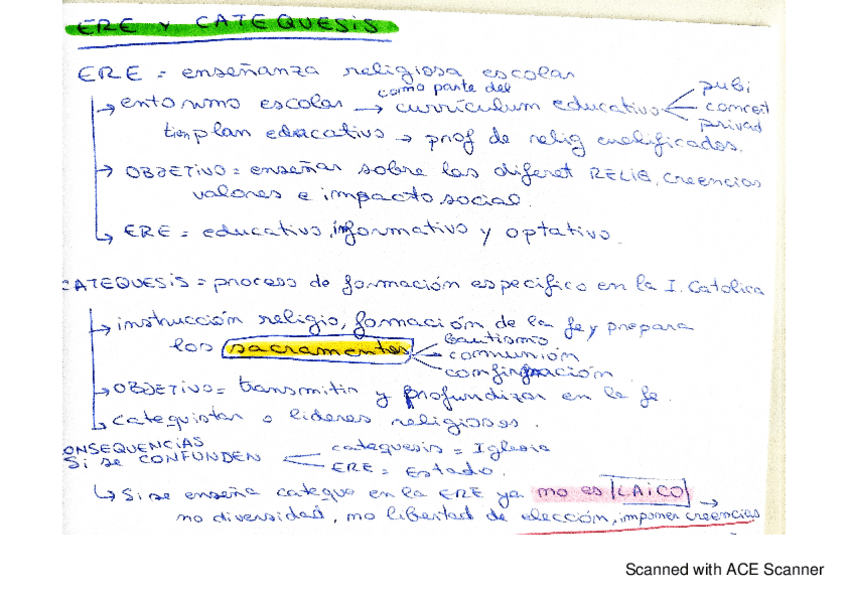 ERE Y CATEQUESIS
ERE = enseñanza religiosa escolar
como parte del
→ entorno escolar → currículum educativo
publi
concert
privad
tien plan educativo → prof de relig cualificados.
→ OBJETIVO = enseñar sobre las diferet RELIG, creencias
valores e impacto social.
→ ERE = educativo, informativo y optativo.
CATEQUESIS = proceso de formación especifico en la I. Catolica
→ instrucción religio, formación de la fe y prepara
los sacramentos
bautismo
comunión
confirmación
→ OBJETIVO = transmitir y profundizar en la fe.
→ catequistas o lideres religiosos.
ONSEQUENCIAS
Si se CONFUNDEN
catequesis = Iglesia
ERE = Estado.
↳ Si se enseña cateque en la ERE ya no es LAICO →
no diversidad, no libertad de elección, imponer creencias
Scanned with ACE Scanner